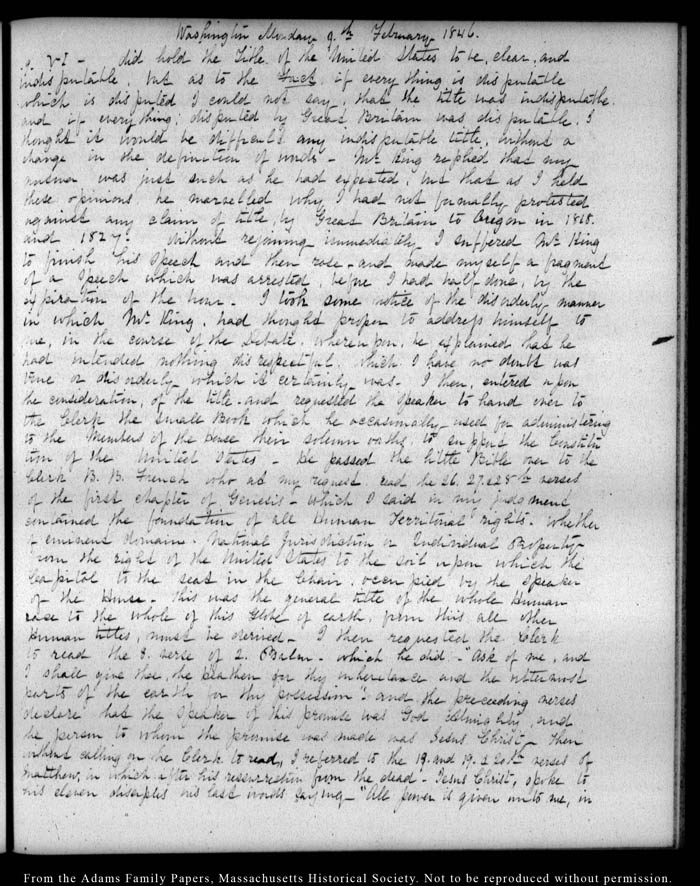 Washington Monday 9th February 1846.
V-I- did hold the Title of the United States to be, clear, and
indisputable, but as to the fact, if every thing is disputable
which is disputed I could not say, that the title was indisputable.
and if everything, disputed by Great Britain was disputable, I
thought it would be difficult any indisputable title, without a
change in the definition of words - Mr King replied that my
answer was just such as he had expected, but that as I held
these opinions he marvelled why I had not formally protested
against any claim of title, by Great Britain to Oregon in 1818.
and 1827. Without rejoining immediately I suffered Mr King
to finish his speech and then rose - and made myself a fragment
of a Speech which was arrested, before I had half done, by the
expiration of the hour - I took some notice of the disorderly manner
in which Mr King, had thought proper to address himself to
me, in the course of the Debate, whereupon, he explained that he
had intended nothing disrespectful, which I have no doubt was
true or disorderly which it certainly was - I then, entered upon
the consideration, of the title - and requested the Speaker to hand over to
the Clerk the Small Book which he occasionally used for administering
to the Members of the House their solemn oaths, to support the Constitu
tion of the United States - He passed the little Bible over to the
Clerk B. B. French who at my request read the 26. 27. & 28th verses
of the first chapter of Genesis - which I said in my judgment
contained the foundation of all Human Territorial rights - whether
of eminent domain - National Jurisdiction or Individual Property -
from the right of the United States to the soil upon which the
Capitol to the seat in the Chair, occupied by the Speaker
of the House - this was the general title of the whole Human
race to the whole of this Globe of earth, from this, all other
Human titles, must be derived - I then requested the Clerk
to read the 8. verse of 2. Psalm - which he did - "Ask of me, and
I shall give thee, the heathen for thy inheritance and the uttermost
parts of the earth for thy possession": and the preceeding verses
declare that the speaker of this promise was God Almighty, and
the person to whom the promise was made was Jesus Christ - Then
without calling on the Clerk to read, I referred to the 18. and 19. & 20th verses of
Matthew, in which after his resurrection from the dead - Jesus Christ, spoke to
his eleven disciples his last words saying - "All power is given unto me, in
From the Adams Family Papers, Massachusetts Historical Society. Not to be reproduced without permission.